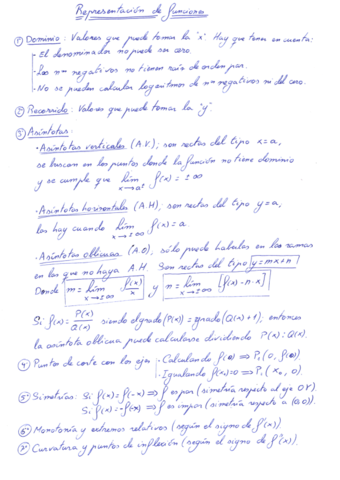 Representación de funciones
① Dominio: Valores que puede tomar la "x" Hay que tener en cuenta:
· El denominador no puede ser cero.
· Los nºs negativos no tienen raíz de orden par.
· No se pueden calcular logaritmos de nºs negativos ni del cero.
② Recorrido: Valores que puede tomar la "y"
③ Asíntotas:
· Asíntotas verticales (A.V); son rectas del tipo x=a,
se buscan en los puntos donde la función no tiene dominio
y se cumple que lim x→a± f(x) = ±∞
· Asíntotas horizontales (A.H); son rectas del tipo y=a,
las hay cuando lim x→±∞ f(x) = a.
· Asíntotas oblicuas (A.O), sólo puede haberlas en las ramas
en las que no haya A.H. Son rectas del tipo y=mx+n
Donde m = lim x→±∞ f(x)/x y n = lim x→±∞ [f(x)-m·x]
Si f(x) = P(x)/Q(x) siendo grado(P(x)) = grado(Q(x)+1), entonces
la asíntota oblicua puede calcularse dividiendo P(x):Q(x).
④ Puntos de corte con los ejes · Calculando f(0) ⇒ P₁(0, f(0))
· Igualando f(x)=0 ⇒ P₂(x₀, 0)
⑤ Simetrías: Si f(x)=f(-x) ⇒ f es par (simetría respecto al eje OY)
Si f(x)=-f(-x) ⇒ f es impar (simetría respecto a (0,0)).
⑥ Monotonía y extremos relativos (según el signo de f'(x)).
⑦ Curvatura y puntos de inflexión (según el signo de f''(x)).